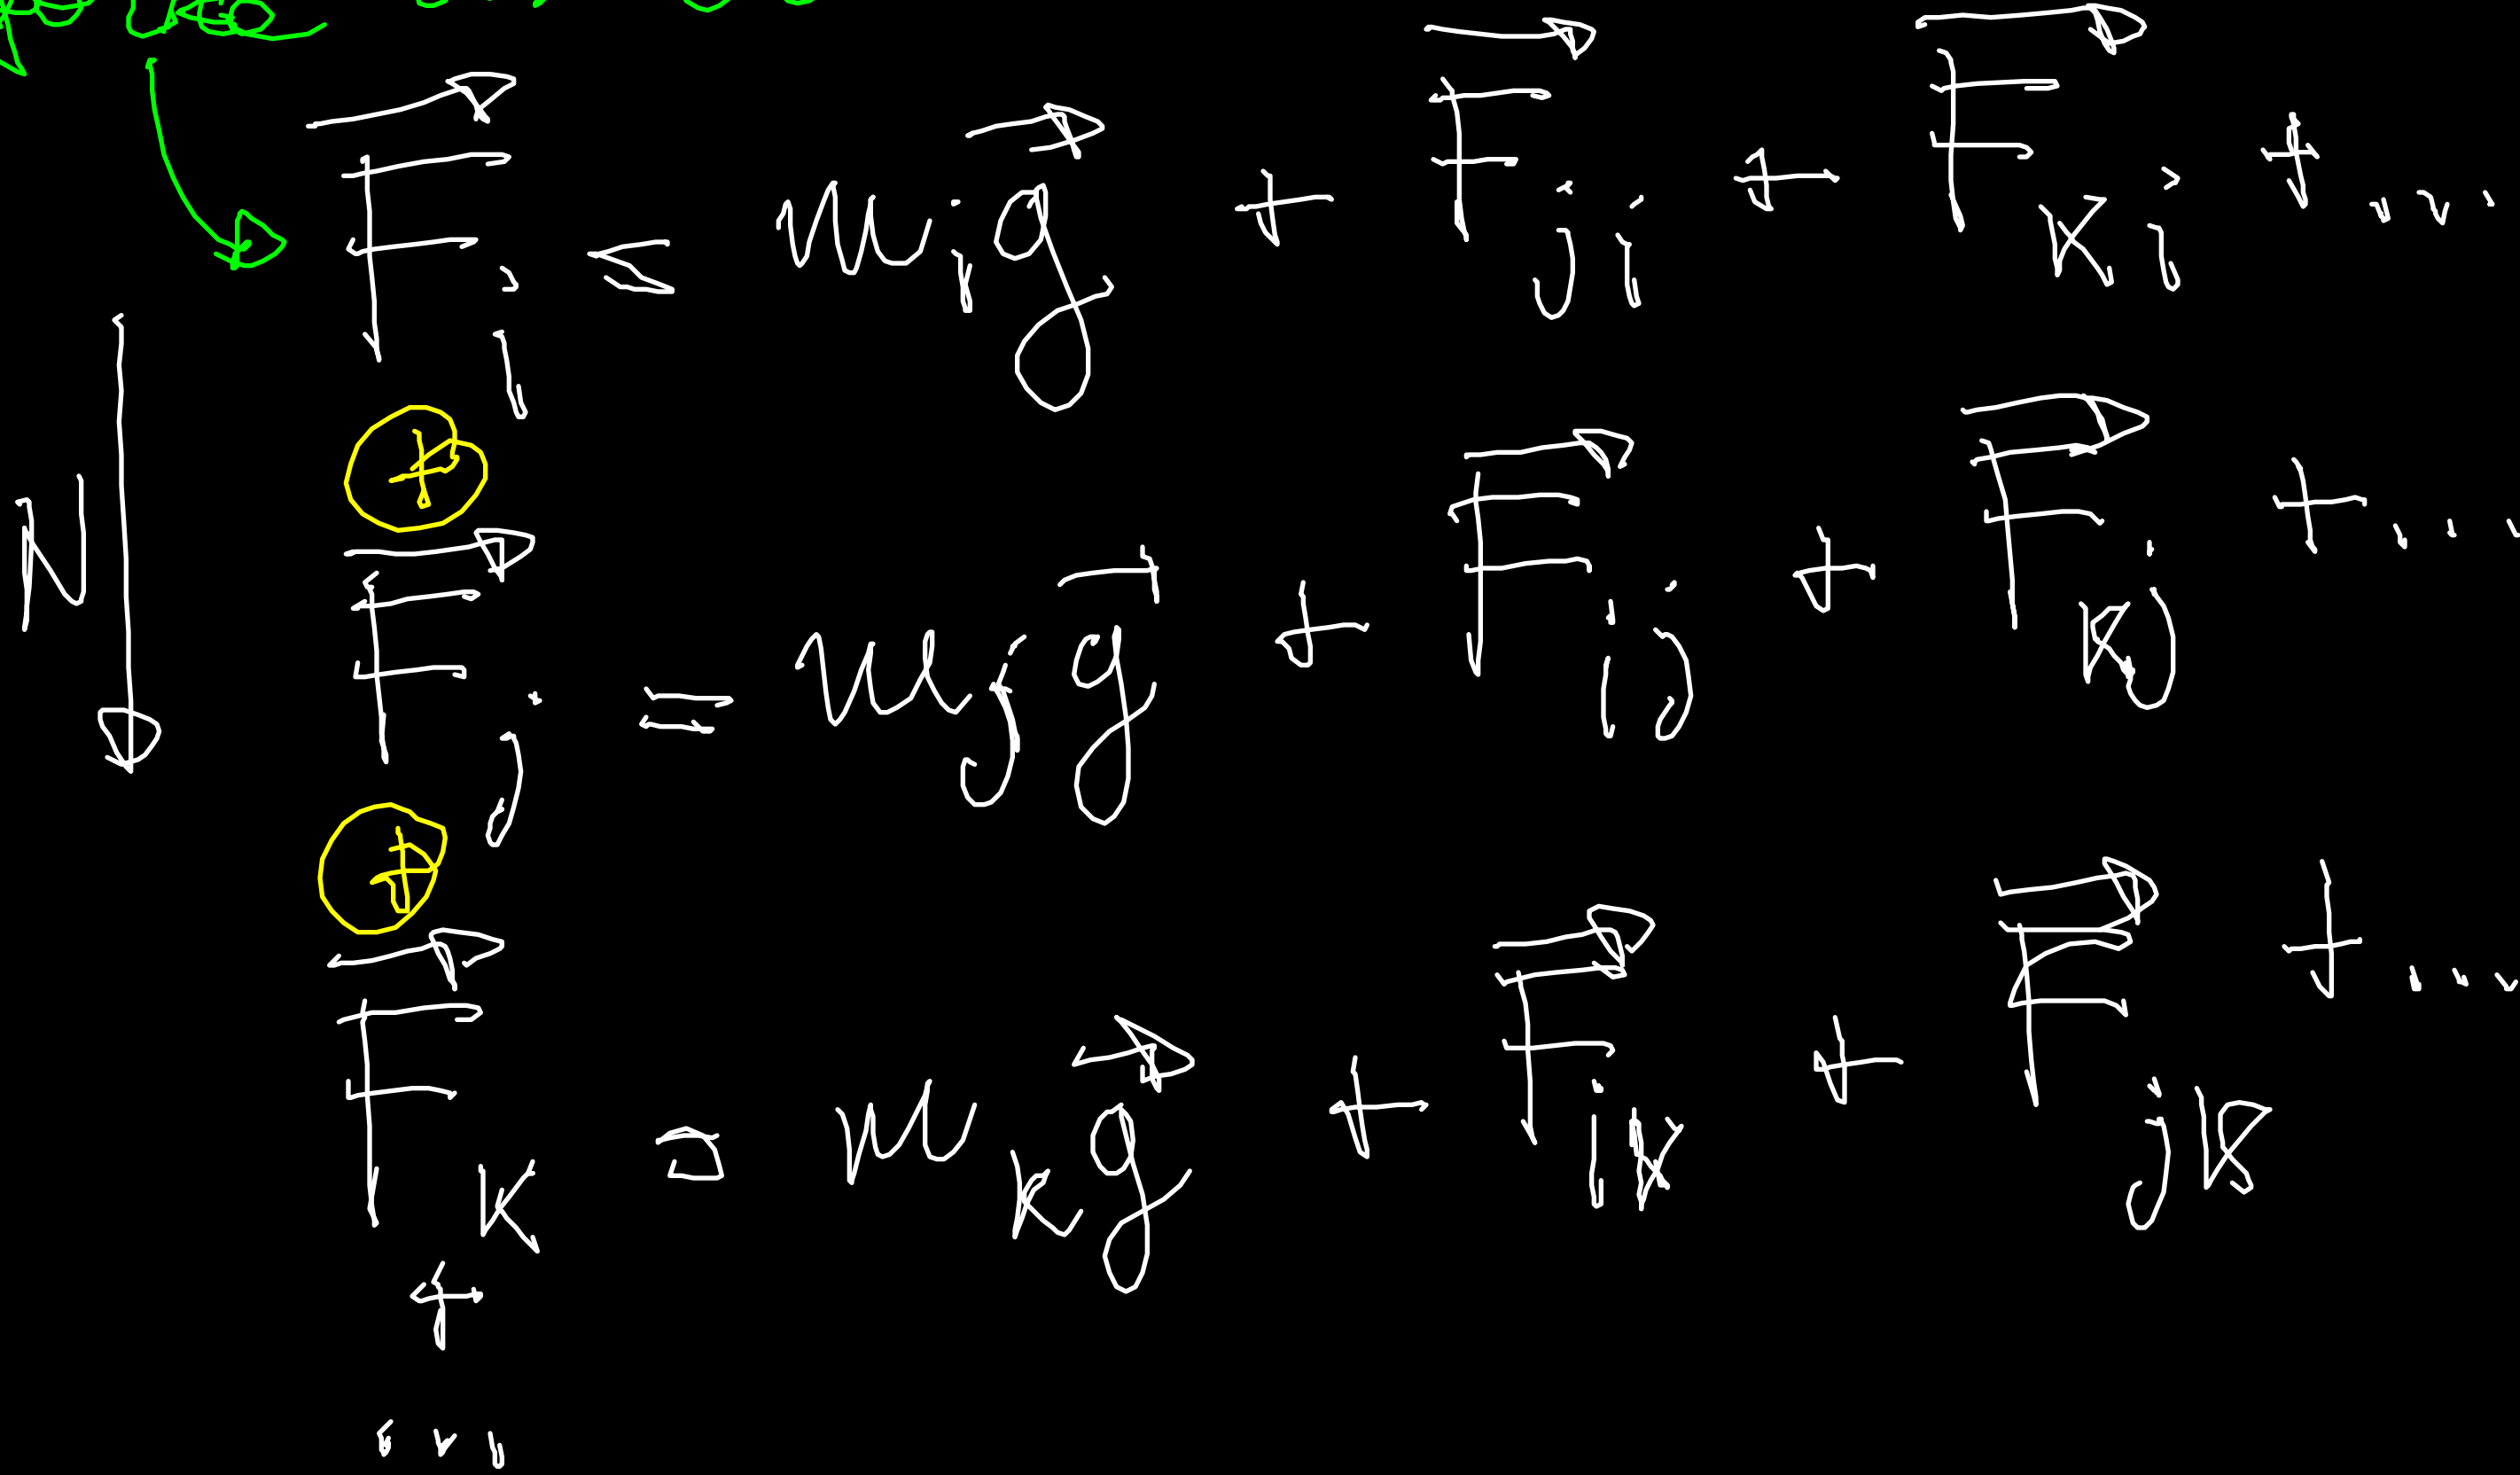 F⃗ᵢ = mᵢg⃗ + F⃗ⱼᵢ + F⃗ₖᵢ + ...
+
N
F⃗ⱼ = mⱼg⃗ + F⃗ᵢⱼ + F⃗ₖⱼ + ...
+
F⃗ₖ = mₖg⃗ + F⃗ᵢₖ + F⃗ⱼₖ + ...
+
...